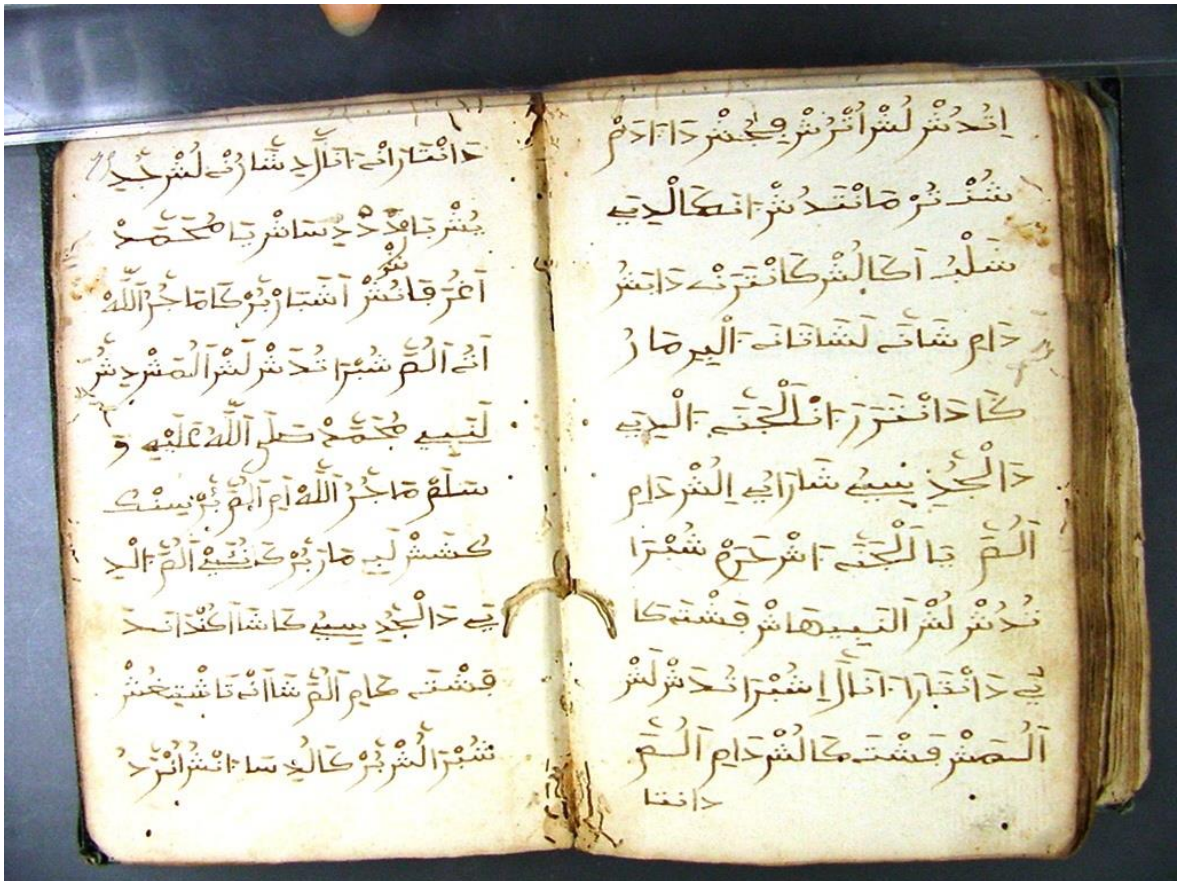 اِتُدُشْ لُشْ اُتْرُشْ فِجُشْ دَا ءَادَمْ
شُنْ تُرْمَانْتَدُشْ اَنَكَالْ دِيَ
شَلْبُ اَكَالُشْ كَانْتَرَنْ دَابَشُ
دَامِ شَانَ لَشَانَانَ اَلْبِرِمَارُ
كَا دَانْتَرَرَ اَنْ اَلْجَنَّة اَلْدِيَ
دَالْجُدِسِيُ شَارَايُ اِلُشْ دَامِ
اَلُمَّ يَا اَلْجَنَّة اَشْ حَرَمْ شُبْرَا
تُدُشْ لُشْ اَلنَّبِيهَاشْ فَشْتَ كَا
يُ دَانْتَارَا اَنَالَّ اِشُبْرَا تُدَشْ لَشْ
اَلُمَّشْ فَشْتَ كَالُشْ دَامِ اَلُمَّ
دانتا
دَانْتَارَانْ اَنَالَّ اِشَارُنْ لُشْ جُدِ
يُشْ يَا مُحَمَّدْ
اَغُرَ فَانُشْ اَشَبَارْ بُرْكَا مَاجُرُ اَللَّهْ
اَتُ اَلُمَّ شُبْرَا تُدَشْ لَشْ اَلُمَّشْ دِشُ
لَنَّبِيِ مُحَمَّدْ صَلَّى اَللَّهُ عَلَيْهِ وَ
سَلَّمَ مَاجُرُ اَللَّهْ اَمِ اَلُمَّ بُرْ سِنْكُ
كُشَشْ لَبِرِمَارَ بُرْكَا اَلُمَّ اَلْدِ
يَ دَالْجُدِسِيُ كَا شَا اَكُنْدَانَدَ
فَشْتَ كَامِ اَلُمَّ شَاانْ تَاشْتِغُشْ
شُبْرَالُشْ بُرْكَالُدِسَا اَنْشُ اُنْرَدُ